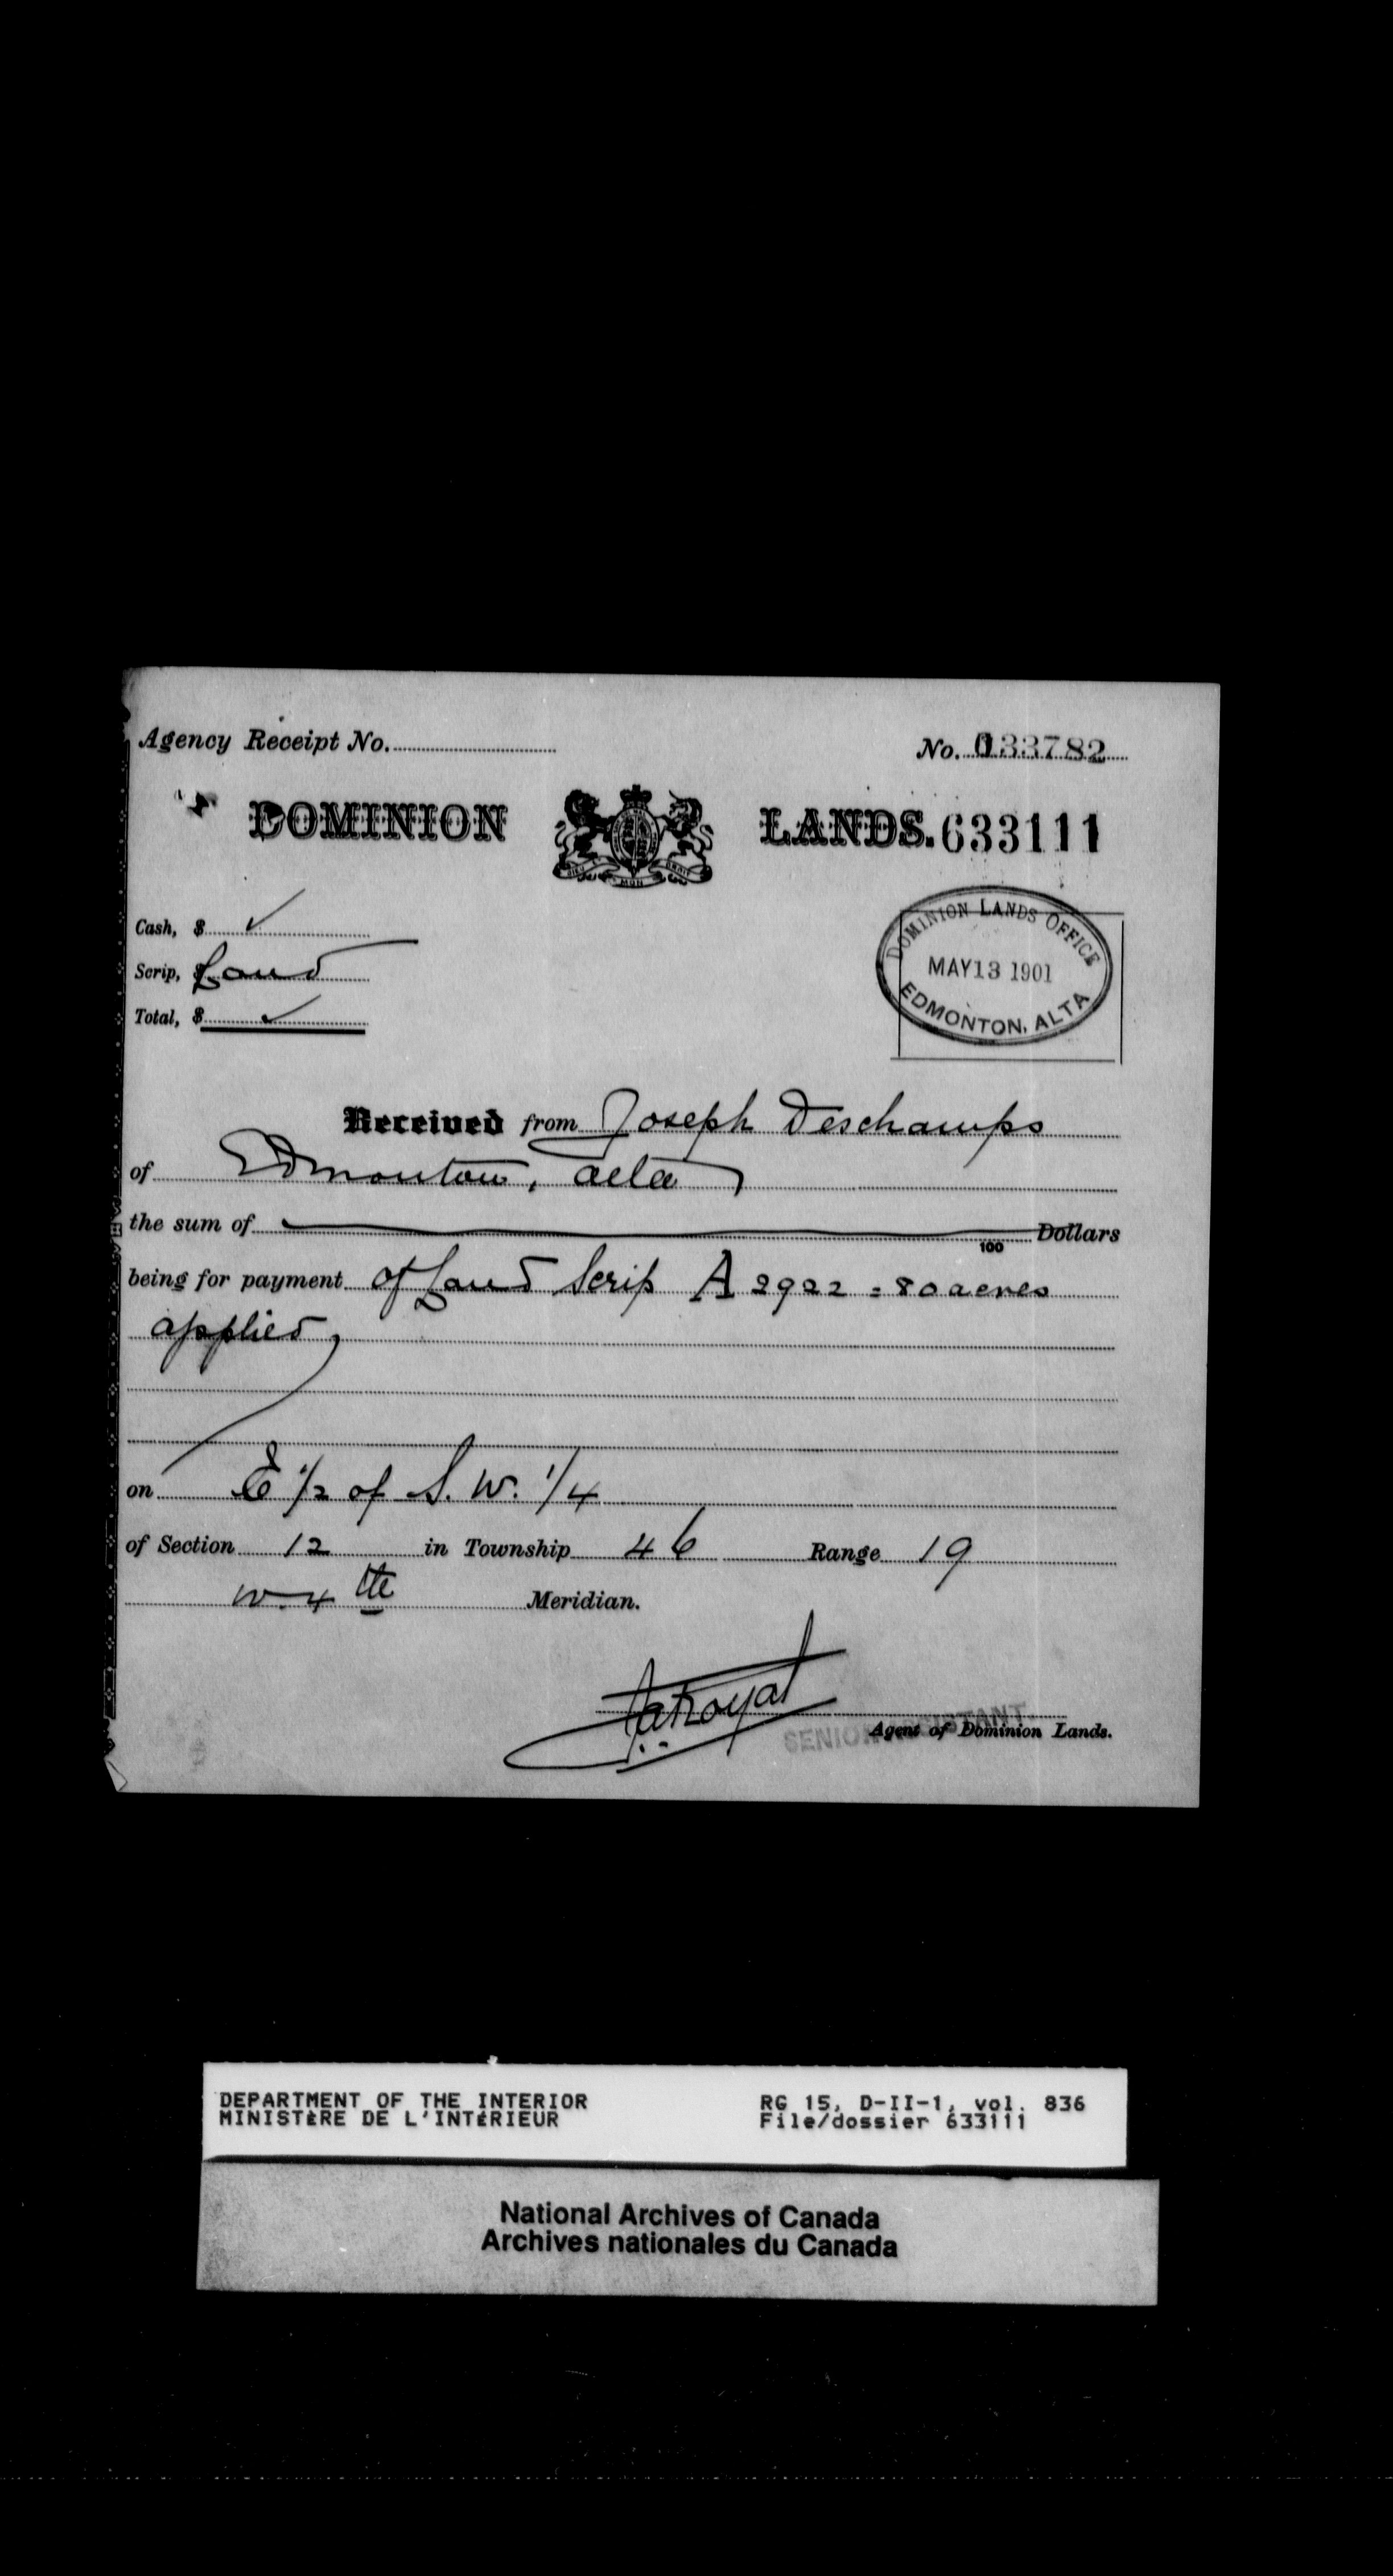 Agency Receipt No.
No. 033782
DOMINION LANDS. 633111
DIEU MON DROIT
Cash, $ ✓
Scrip, $ Land
Total, $ ✓
DOMINION LANDS OFFICE
MAY 13 1901
EDMONTON, ALTA
Received from Joseph Deschamps
of Edmonton, Alta
the sum of Dollars
100
being for payment of Land Scrip A 2922 = 80 acres
applied
on E 1/2 of S. W. 1/4
of Section 12 in Township 46 Range 19
W. 4th Meridian.
SENIOR ASSISTANT
Agent of Dominion Lands.
DEPARTMENT OF THE INTERIOR
MINISTÈRE DE L'INTÉRIEUR
RG 15, D-II-1, vol. 836
File/dossier 633111
National Archives of Canada
Archives nationales du Canada